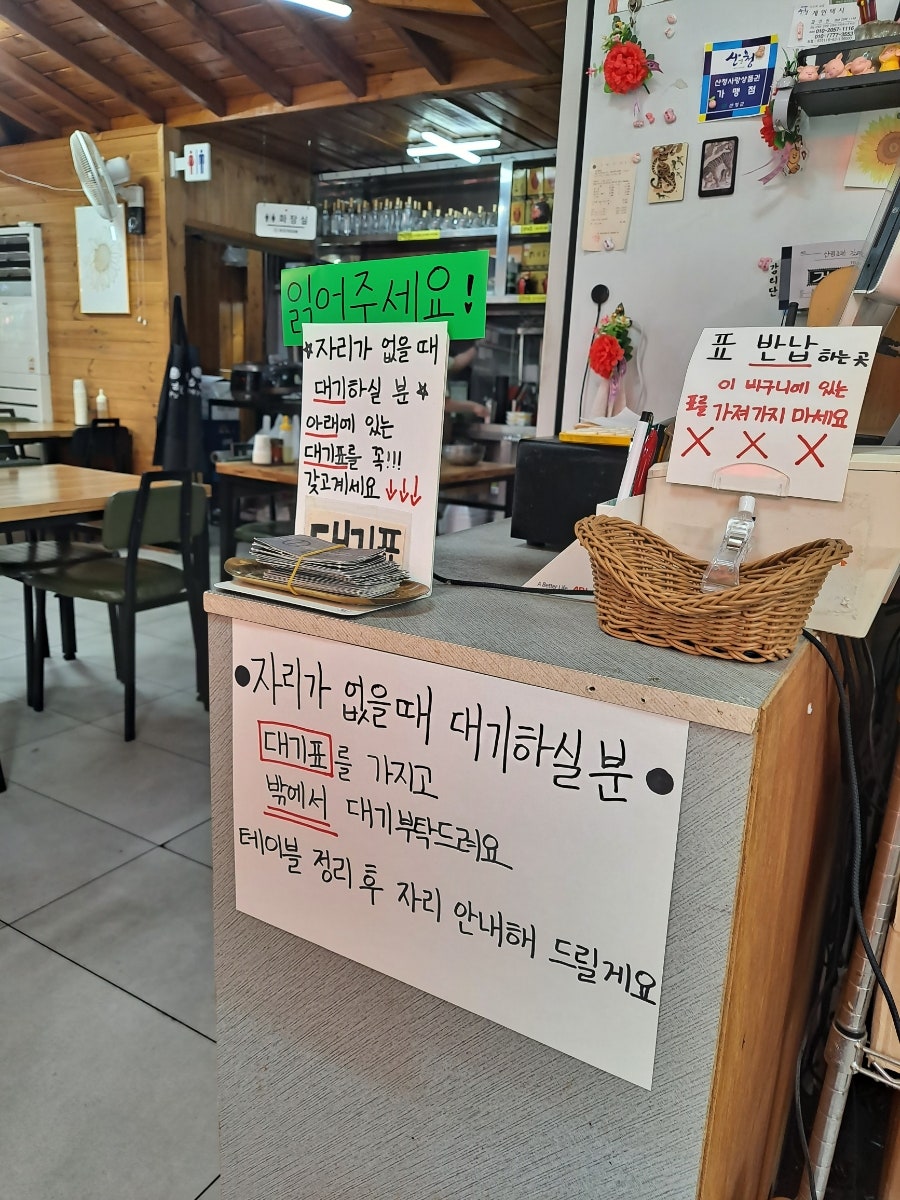 화장실
산청
산청사랑상품권
가맹점
산청군
개인택시
010-2057-1116
010-7777-3553
읽어주세요!
자리가 없을 때
대기하실 분
아래에 있는
대기표를 꼭!!!
갖고계세요 ↓↓↓
대기표
표 반납하는곳
이 바구니에 있는
표를 가져가지 마세요
X X X
A Better Life
자리가 없을때 대기하실 분
대기표를 가지고
밖에서 대기부탁드려요
테이블 정리 후 자리 안내해 드릴게요